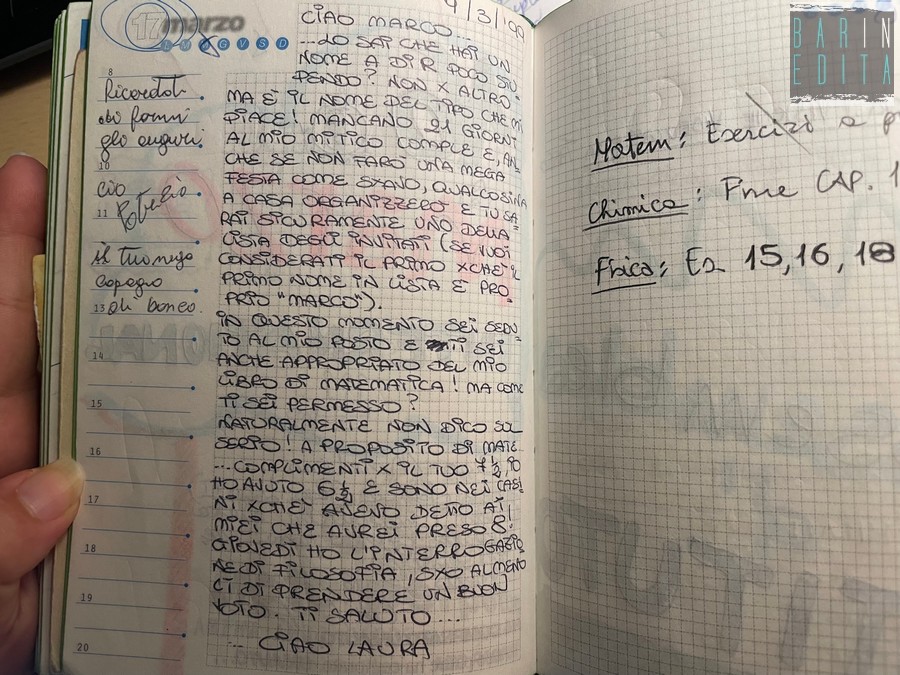 17 marzo
L M M G V S D
8
Ricordati
di farmi
gli auguri
10
ciao
11
Fabrizio
il tuo migo
13 di banco
14
15
16
17
18
19
20
9/3/99
CIAO MARCO...
...LO SAI CHE HAI UN
NOME A DIR POCO STU
PENDO? NON X ALTRO
MA È IL NOME DEL TIPO CHE MI
PIACE! MANCANO 21 GIORNI
AL MIO MITICO COMPLE E, AN
CHE SE NON FARÒ UNA MEGA
FESTA COME STANO, QUALCOSINA
A CASA ORGANIZZERÒ E TU SA
RAI SICURAMENTE UNO DELLA
LISTA DEGLI INVITATI (SE VUOI
CONSIDERATI IL PRIMO XCHÈ IL
PRIMO NOME IN LISTA È PRO
PRIO "MARCO").
IN QUESTO MOMENTO SEI SEDU
TO AL MIO POSTO E TI SEI
ANCHE APPROPRIATO DEL MIO
LIBRO DI MATEMATICA! MA COME
TI SEI PERMESSO?
NATURALMENTE NON DICO SUL
SERIO! A PROPOSITO DI MATE
...COMPLIMENTI X IL TUO 7 ½, IO
HO AVUTO 6 ½ E SONO NEI CASI
NI XCHÈ AVEVO DETTO AI
MIEI CHE AVREI PRESO 8.
GIOVEDÌ HO L'INTERROGAZIO
NE DI FILOSOFIA, SXO ALMENO
LÌ DI PRENDERE UN BUON
VOTO. TI SALUTO...
... CIAO LAURA
BARIN
EDITA
Matem: Esercizi a p
Chimica: Fine CAP. 1
Fisica: Es 15, 16, 18